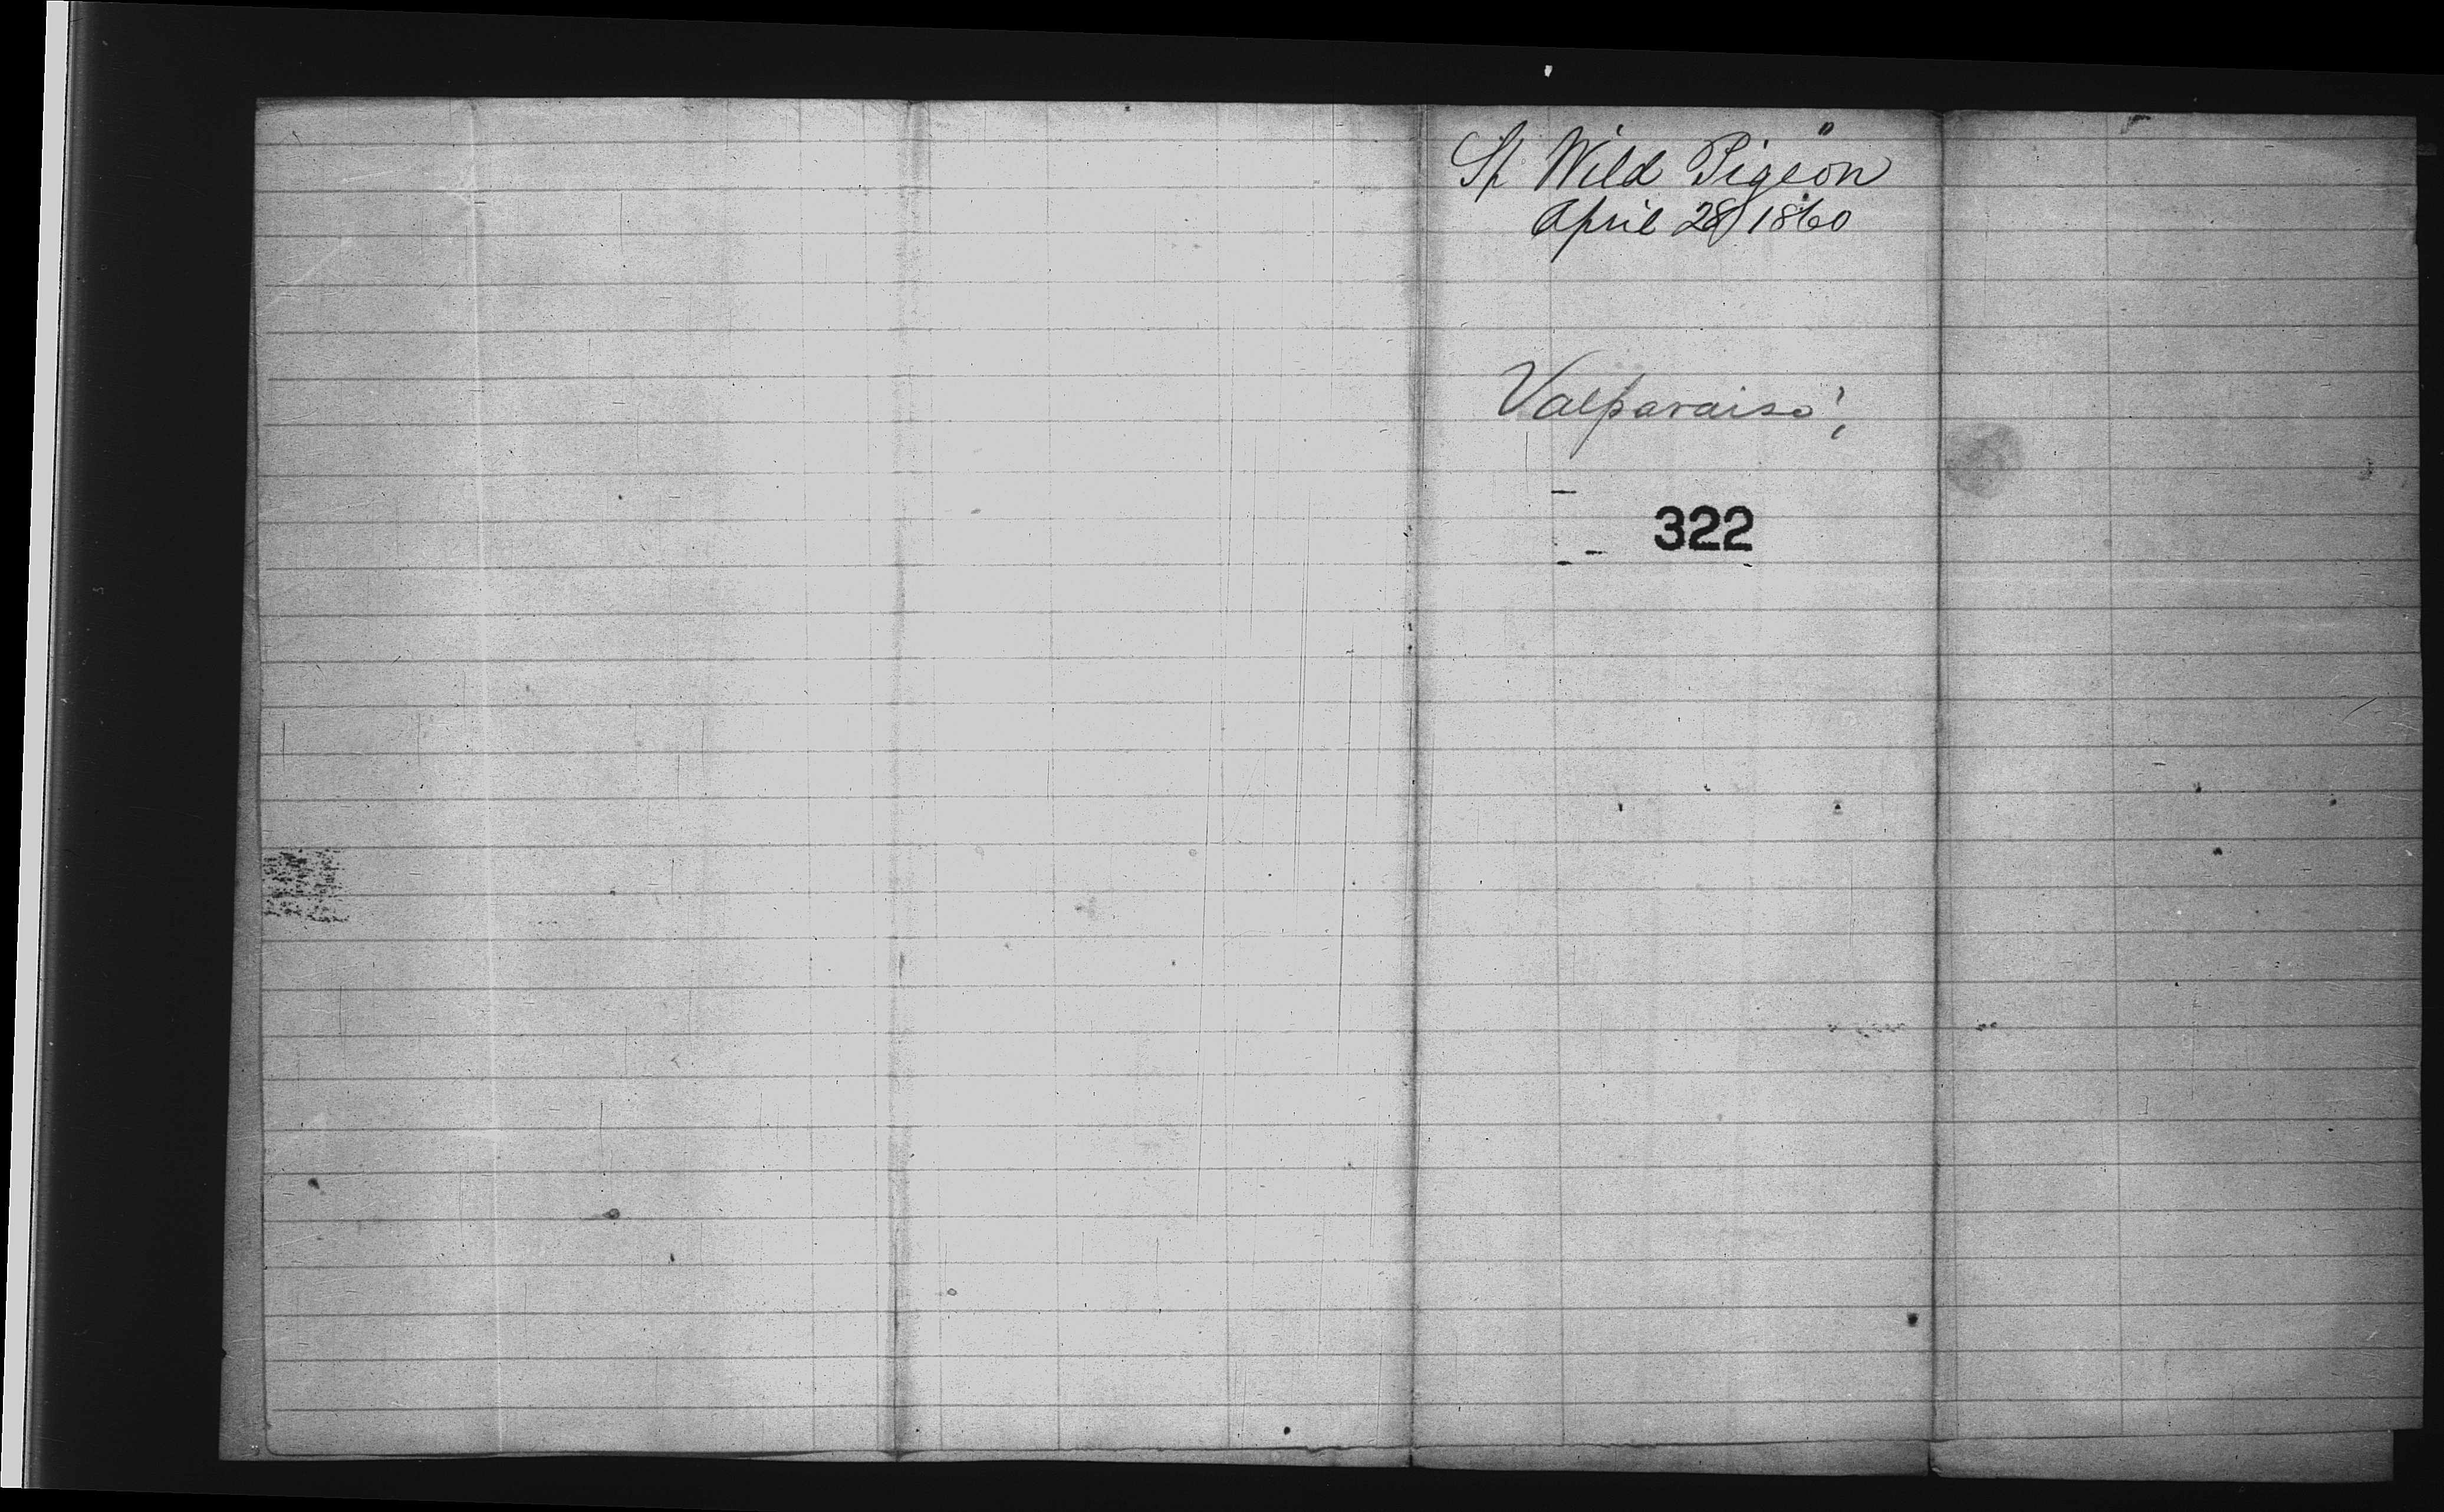 Sh Wild Pigeon
April 28 1860
Valparaiso
322